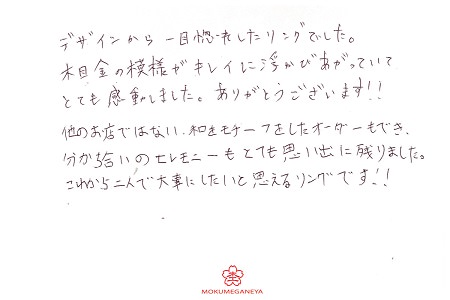 デザインから一目惚れしたリングでした。
木目金の模様がキレイに浮かびあがっていて
とても感動しました。ありがとうございます!!
他のお店ではない、和をモチーフをしたオーダーもでき、
分かち合いのセレモニーもとても思い出に残りました。
これから二人で大事にしたいと思えるリングです!!
MOKUMEGANEYA